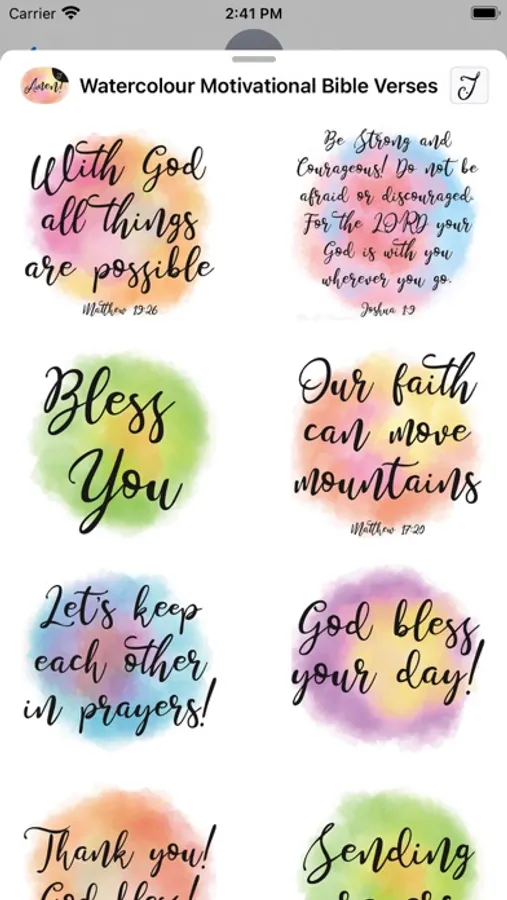 Carrier 2:41 PM
Amen!
Watercolour Motivational Bible Verses
J
With God
all things
are possible
Matthew 19:26
Be Strong and
Courageous! Do not be
afraid or discouraged.
For the LORD your
God is with you
wherever you go.
Joshua 1:9
Bless
You
Our faith
can move
mountains
Matthew 17:20
Let's keep
each other
in prayers!
God bless
your day!
Thank you!
God bless!
Sending